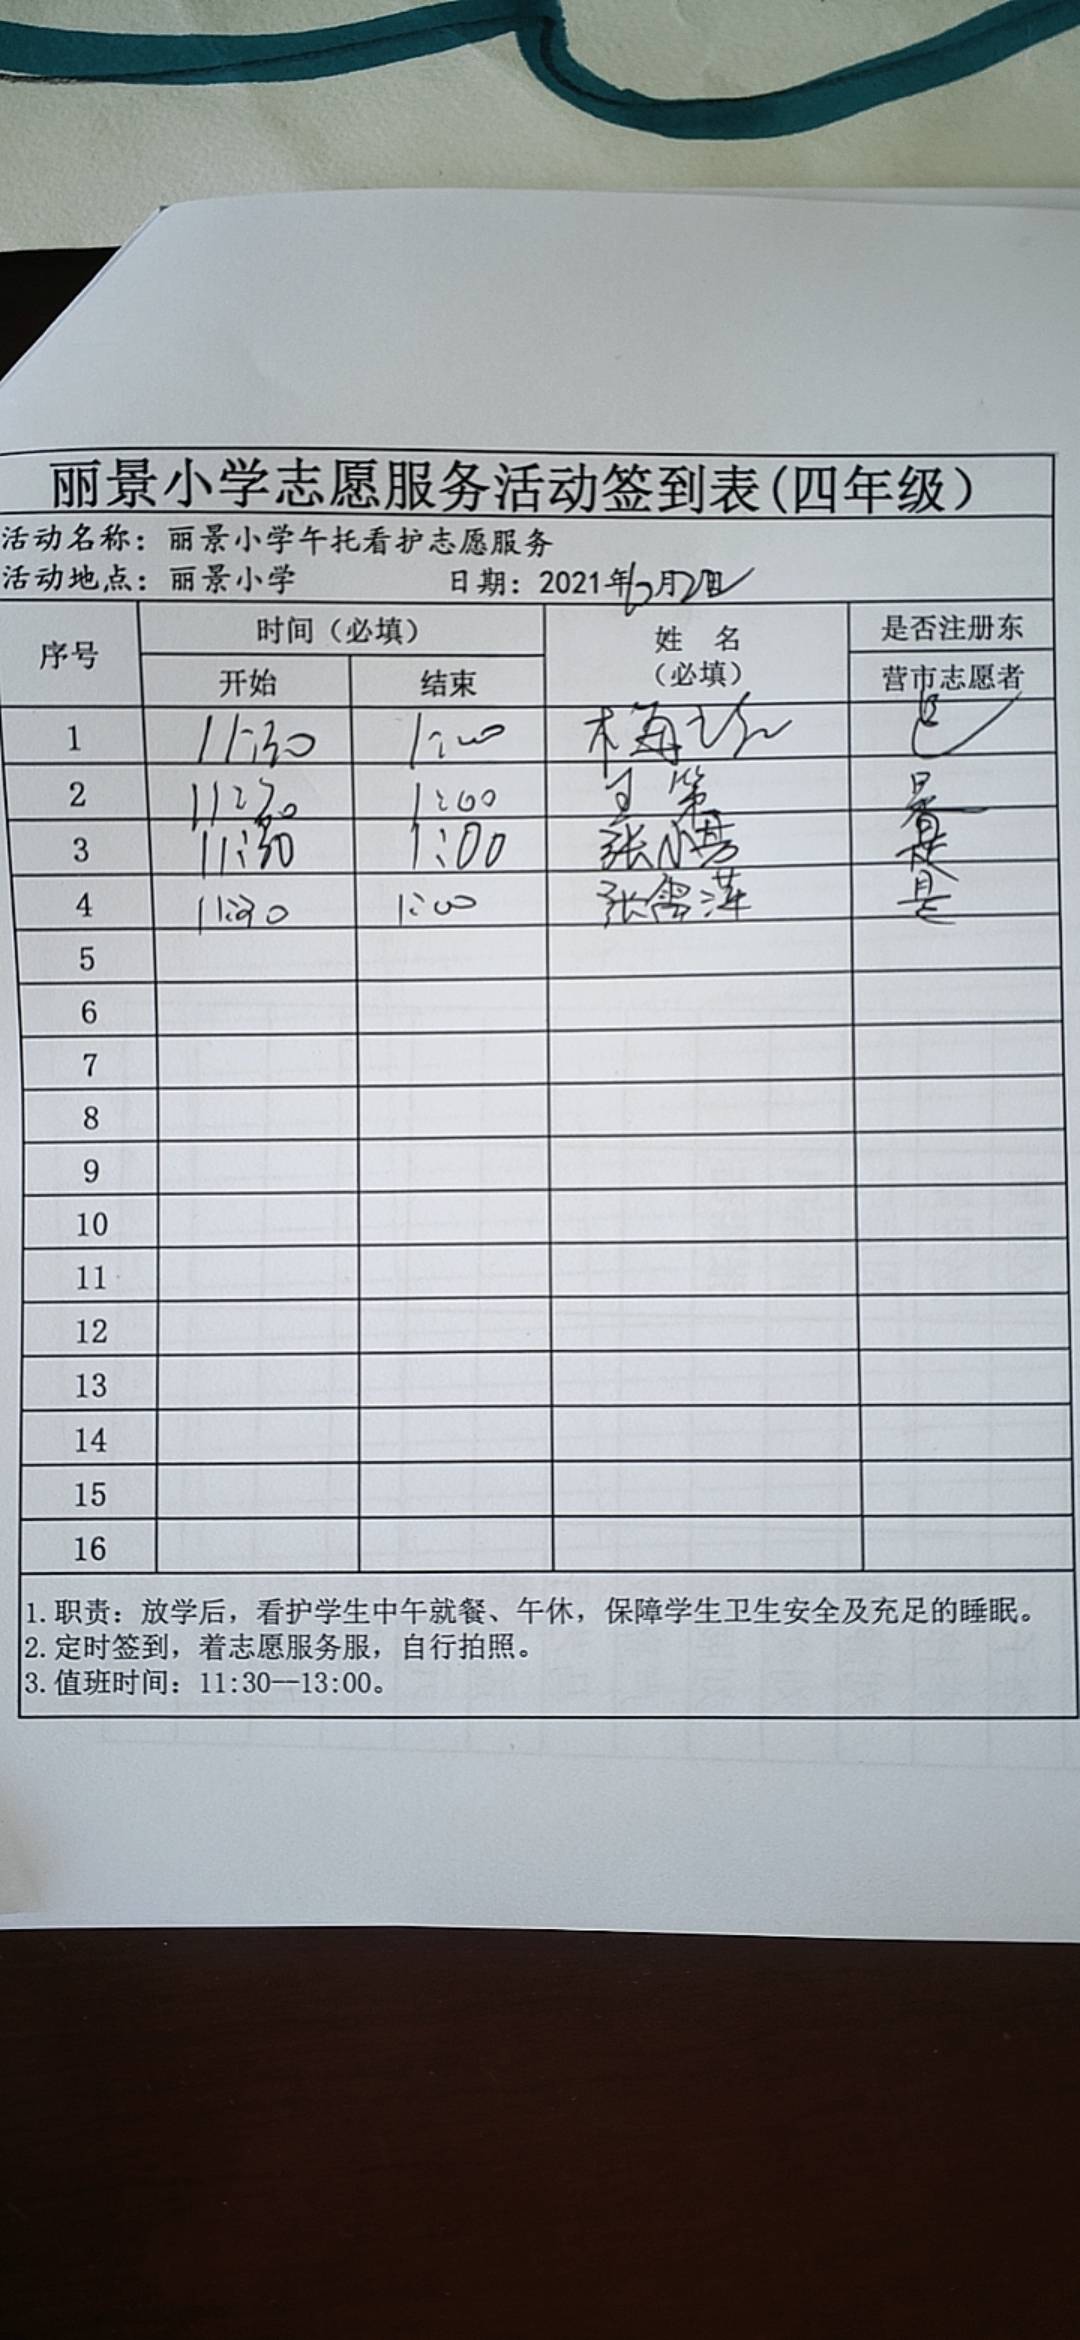 丽景小学志愿服务活动签到表(四年级）
活动名称：丽景小学午托看护志愿服务
活动地点：丽景小学 日期：2021年6月2日
序号 时间（必填） 姓 名（必填） 是否注册东营市志愿者
开始 结束
1 11:30 1:00 是
2 11:30 1:00 王 是
3 11:30 1:00 张小 是
4 11:30 1:00 张雪萍 是
5
6
7
8
9
10
11
12
13
14
15
16
1.职责：放学后，看护学生中午就餐、午休，保障学生卫生安全及充足的睡眠。
2.定时签到，着志愿服务服，自行拍照。
3.值班时间：11:30—13:00。